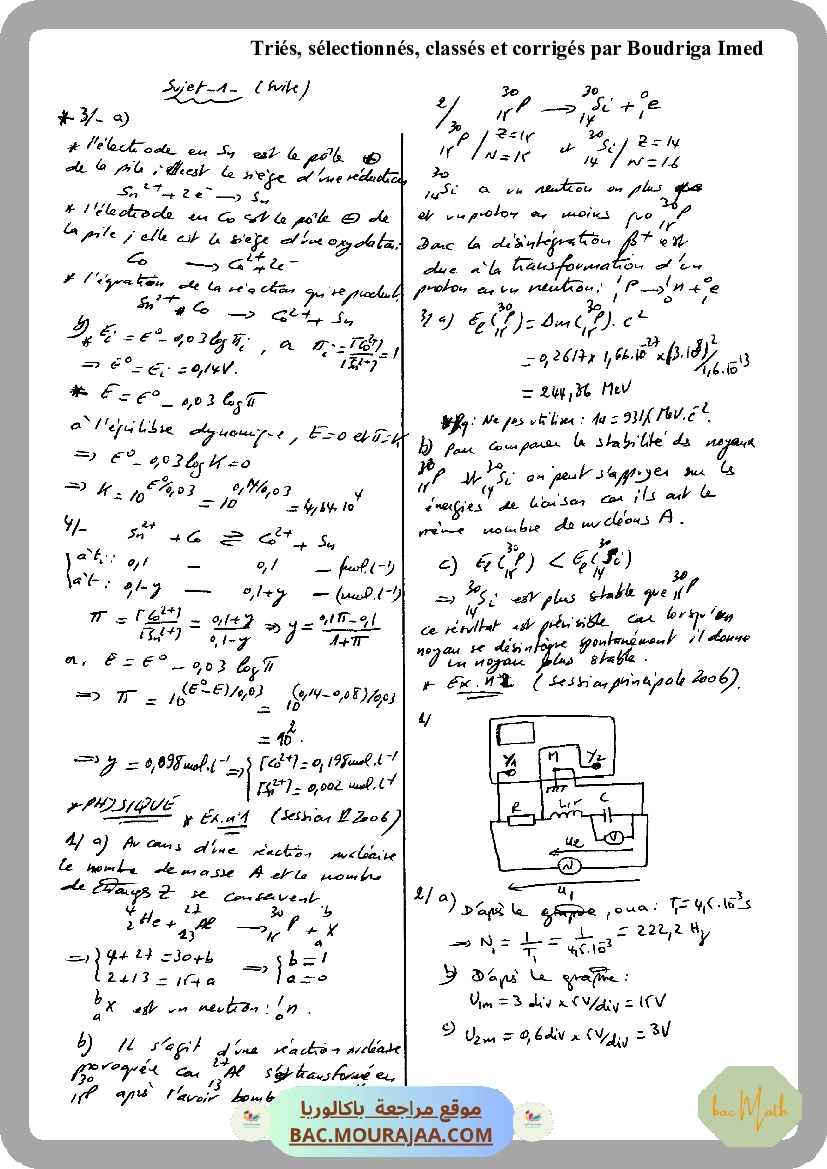 Triés, sélectionnés, classés et corrigés par Boudriga Imed
Sujet-1- (suite)
* 3/- a)
* l'électrode en Sn est le pôle ⊕
de la pile ; elle est le siège d'une réduction
Sn²⁺ + 2e⁻ → Sn
* l'électrode en Co est le pôle ⊖ de
la pile ; elle est le siège d'une oxydation:
Co → Co²⁺ + 2e⁻
* l'équation de la réaction qui se produit:
Sn²⁺ + Co → Co²⁺ + Sn
b) * Ei = E° - 0,03 log πi, or πi = [Co²⁺]/[Sn²⁺] = 1
⇒ E° = Ei = 0,14V.
* E = E° - 0,03 log π
à l'équilibre dynamique, E=0 et π=K
⇒ E° - 0,03 log K = 0
⇒ K = 10^(E°/0,03) = 10^(0,14/0,03) = 4,64.10⁴
4/- Sn²⁺ + Co ⇌ Co²⁺ + Sn
à ti : 0,1 — 0,1 — (mol.l⁻¹)
à t : 0,1-y — 0,1+y — (mol.l⁻¹)
π = [Co²⁺]/[Sn²⁺] = (0,1+y)/(0,1-y) ⇒ y = (0,1π - 0,1)/(1+π)
or, E = E° - 0,03 log π
⇒ π = 10^((E°-E)/0,03) = 10^((0,14-0,08)/0,03)
= 10²
⇒ y = 0,098 mol.l⁻¹ ⇒ { [Co²⁺] = 0,198 mol.l⁻¹
[Sn²⁺] = 0,002 mol.l⁻¹
* PHYSIQUE * Ex. n°1 (session 2006)
1/ a) Au cours d'une réaction nucléaire
le nombre de masse A et le nombre
de charges Z se conservent
⁴₂He + ²⁷₁₃Al → ³⁰₁₅P + ᵇₐX
⇒ { 4+27 = 30+b ⇒ { b = 1
2+13 = 15+a a = 0
ᵇₐX est un neutron : ¹₀n.
b) Il s'agit d'une réaction nucléaire
provoquée car ²⁷₁₃Al s'est transformé en
³⁰₁₅P après l'avoir
2/ ³⁰₁₅P → ³⁰₁₄Si + ⁰₁e
³⁰₁₅P / Z=15 N=15 et ³⁰₁₄Si / Z=14 N=16
³⁰₁₄Si a un neutron en plus
et un proton en moins que ³⁰₁₅P
Donc la désintégration β⁺ est
due à la transformation d'un
proton en un neutron : ¹₁P → ¹₀n + ⁰₁e
3/ a) El(³⁰₁₅P) = Δm(³⁰₁₅P). c²
= 0,2617 x 1,66.10⁻²⁷ x (3.10⁸)²/1,6.10⁻¹³
= 244,36 MeV
* Rq: Ne pas utiliser : 1u = 931,5 MeV.c⁻².
b) Pour comparer la stabilité des noyaux
³⁰₁₅P et ³⁰₁₄Si on peut s'appuyer sur les
énergies de liaison car ils ont le
même nombre de nucléons A.
c) El(³⁰₁₅P) < El(³⁰₁₄Si)
⇒ ³⁰₁₄Si est plus stable que ³⁰₁₅P
ce résultat est prévisible car lorsqu'un
noyau se désintègre spontanément il donne
un noyau plus stable.
* Ex. n°2 (session principale 2006).
1/
Y1 M Y2
R L,r C
V
u2
N
u1
2/ a) D'après le graphe, on a : T1 = 4,5.10⁻³s
⇒ N1 = 1/T1 = 1/4,5.10⁻³ = 222,2 Hz
b) D'après le graphe :
U1m = 3 div x 5V/div = 15V
c) U2m = 0,6 div x 5V/div = 3V
موقع مراجعة باكالوريا
BAC.MOURAJAA.COM
bac Math